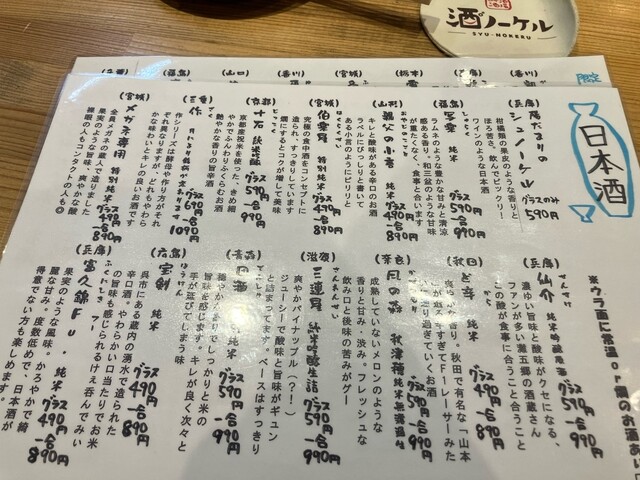 酒ノーケル
SYU-NOKERU
日本酒
※ウラ面に常温or燗のお酒あり
(兵庫)
陽だまりの
シュノーケル
グラスのみ
590円
柑橘類の果皮のような香りと
ほろ苦さ。飲んでビックリ!
ワインのような日本酒
(福島)
写楽 純米
グラス590円
一合990円
ラムネのような豊かな甘みと清涼
感ある香り。和三盆のような甘み
が重たくなく、食事と合います
(山形)
親父の小言 純米
グラス490円
一合890円
キレと酸味がある辛口のお酒
ラベルにびっしりと書いて
ある小言のようにピリリと
(宮城)
伯楽星 特別純米
グラス490円
一合890円
究極の食中酒をコンセプトに
造られ、すっきりしています
燗にするとコクが増して美味
(京都)
十石 純米吟醸
グラス590円
一合990円
京都産祝米を使った、きめ細
やかでふんわりふくらむお酒
艶やかな香りの旨辛酒
(三重)
作
グラス690円
一合1090円
作シリーズは酵母や作り方がそれ
ぞれ異なりますが、どれもやわら
かな味わいとキレの良いお酒です
(宮城)
メガネ専用 特別純米
グラス490円
一合890円
全員メガネの蔵人で造りました
果実のような旨味、爽やかな酸
裸眼の人もコンタクトの人も◎
(兵庫)
仙介 純米吟醸
グラス590円
一合990円
濃ゆい旨味と酸味がクセになる、
ファンが多い灘五郷の酒蔵さん
この酸が食事に合うこと合うこと
(秋田)
純米
グラス590円
一合990円
爽やかな香り。秋田で有名な「山本
(奈良)
風の森 秋津穂 純米
グラス590円
一合990円
成熟していないメロンのような
香りと甘み・渋み。フレッシュな
飲み口と後味の苦みがグー
(滋賀)
三連星 純米吟醸生詰
グラス590円
一合990円
爽やかパイナップル(?!)
ジューシーで酸味と旨味がギュン
と詰まってます。ベースはすっきり
(青森)
グラス
一合990円
しっかりと米の
旨味を感じます。キレが良く次々と
手が延びてしまう味
(広島)
宝剣 純米
グラス490円
一合890円
呉市にある蔵内の湧水で造られた
辛口酒。やわらかい口当たりでお米
の旨味も感じられるけぇ呑んでみい
(兵庫)
富久錦Fu. 純米
グラス490円
一合890円
果実のような風味。かろやかで綺
麗な甘み。度数低めで、日本酒が
得意でない方も楽しめます。